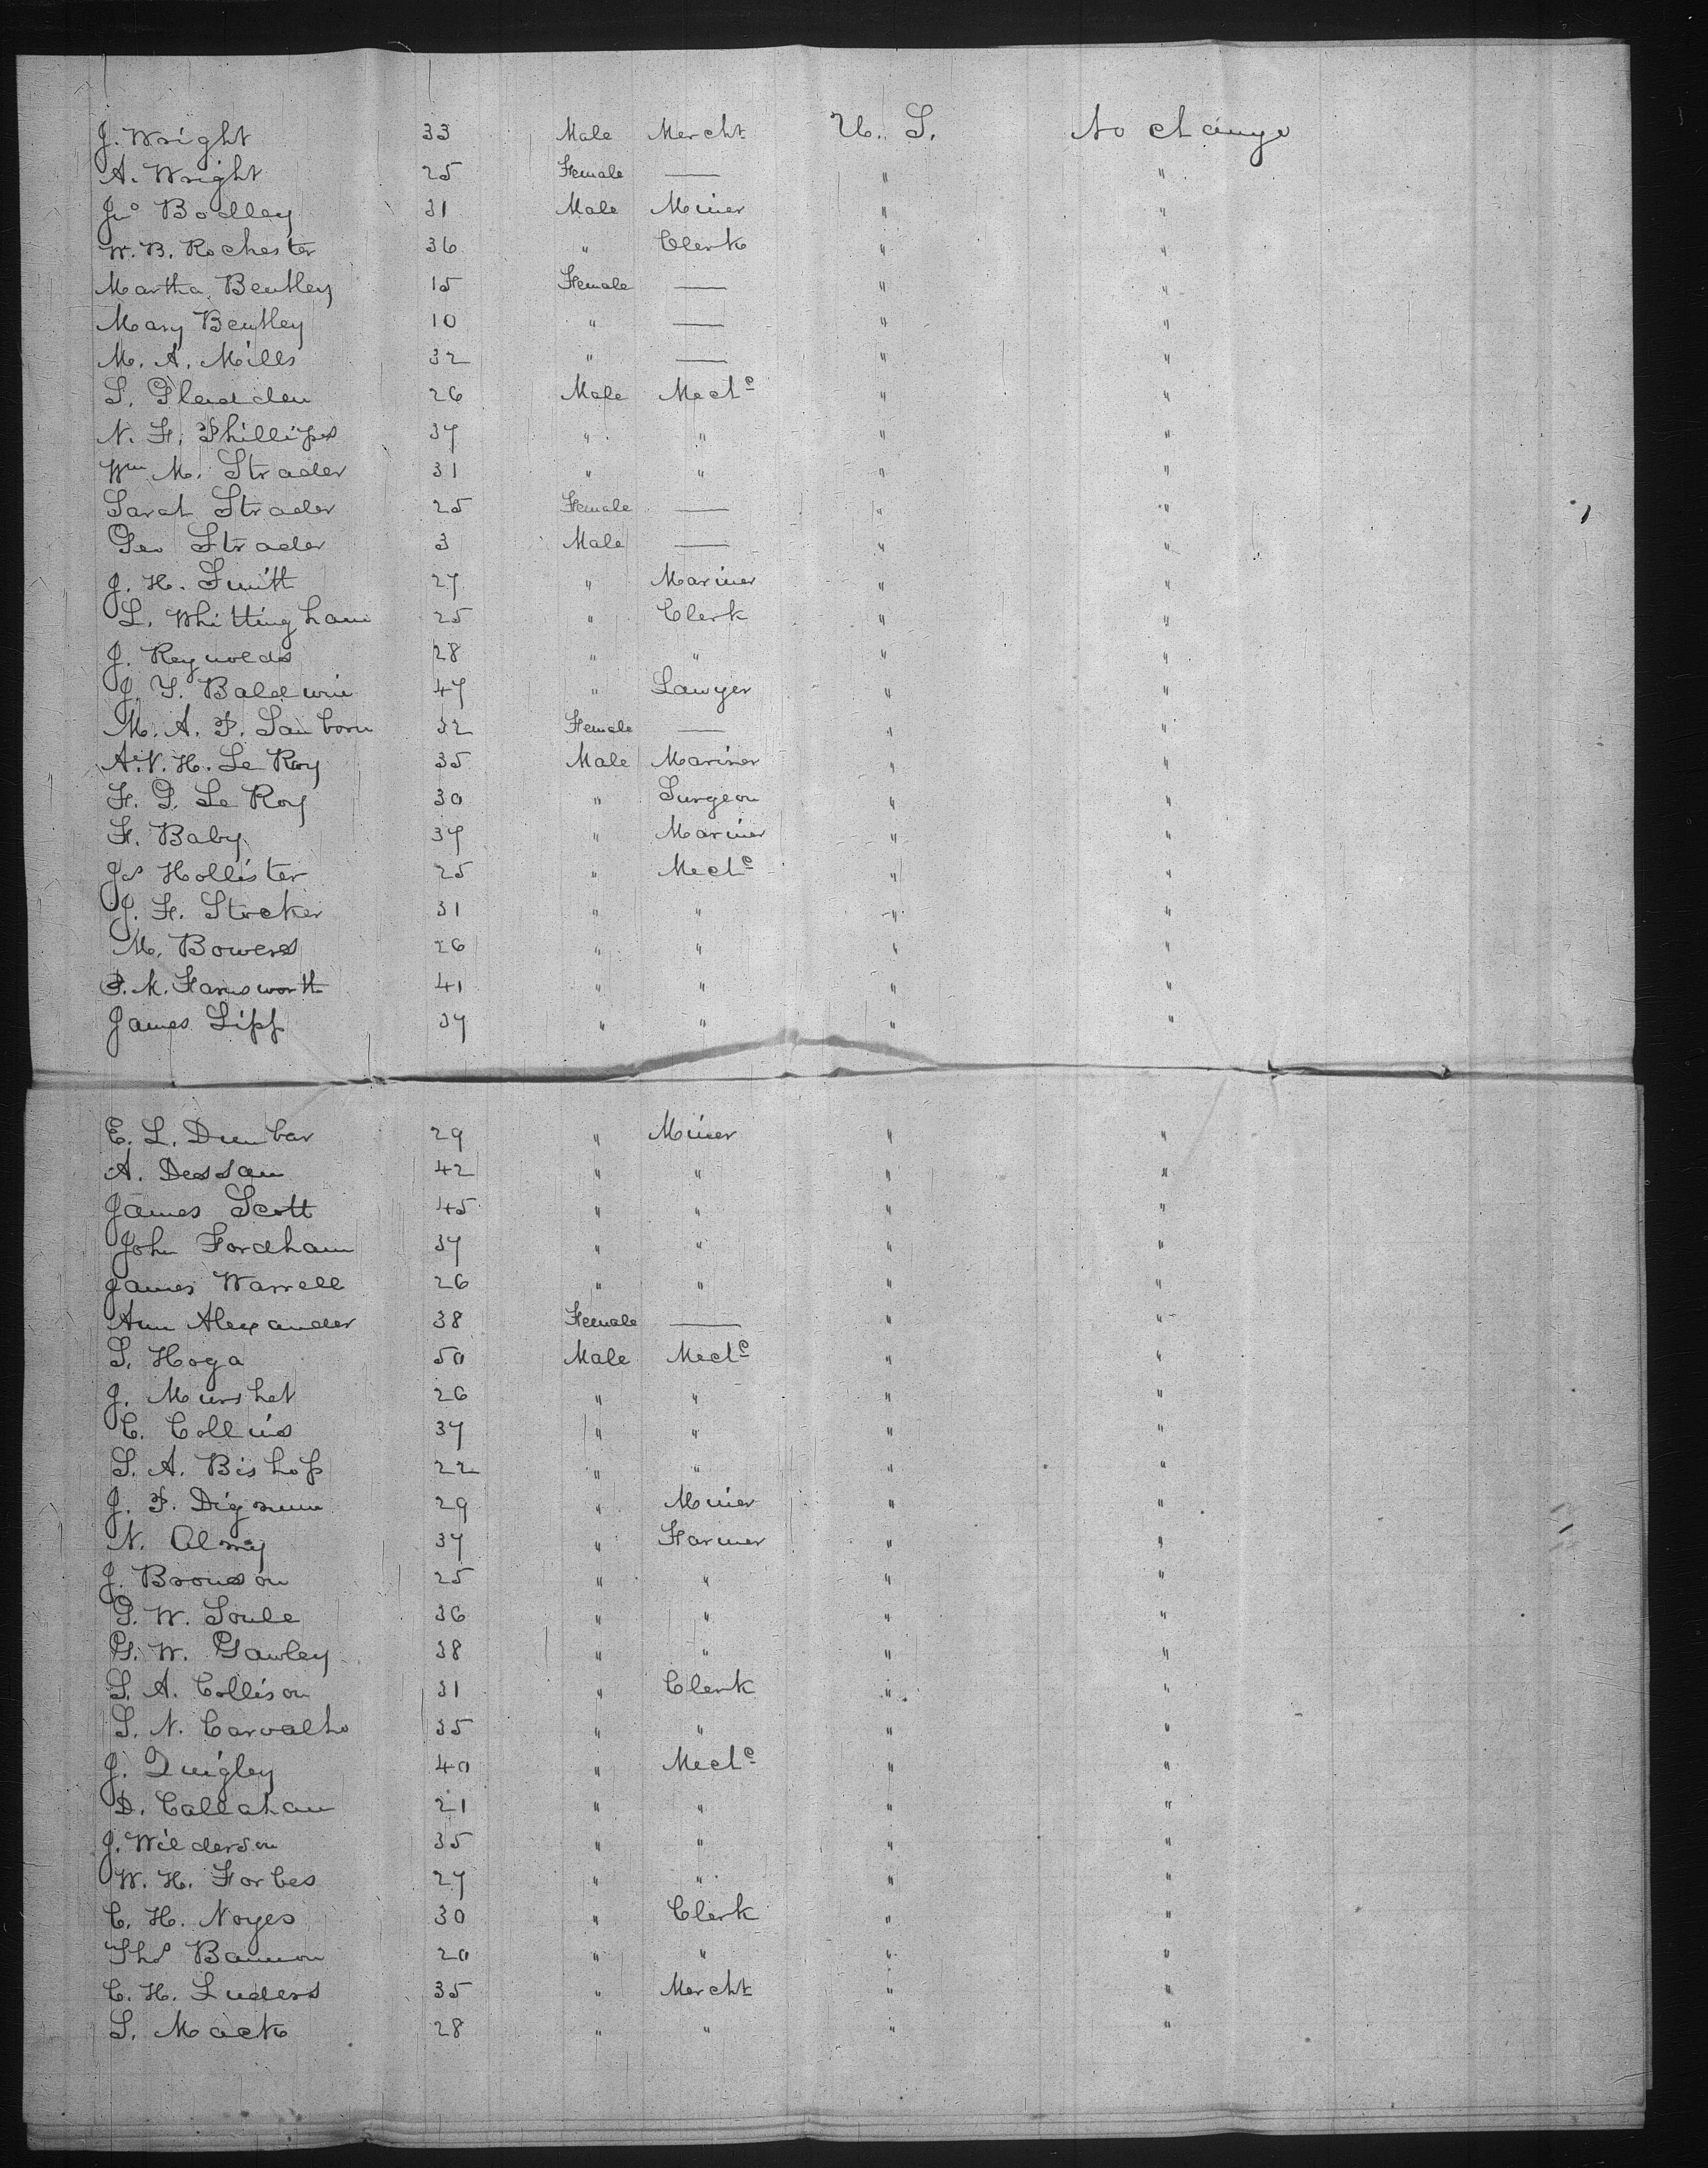 J. Wright 33 Male Mercht U. S. No change
A. Wright 25 Female — " "
Jno Bodley 31 Male Miner " "
W. B. Rochester 36 " Clerk " "
Martha Bentley 15 Female — " "
Mary Bentley 10 " — " "
M. A. Mills 32 " — " "
S. Gladden 26 Male Mechc " "
N. F. Phillips 37 " " " "
Wm M. Strader 31 " " " "
Sarah Strader 25 Female — " "
Geo Strader 3 Male — " "
J. H. Smith 27 " Mariner " "
L. Whittingham 25 " Clerk " "
J. Reynolds 28 " " " "
J. Y. Baldwin 47 " Lawyer " "
M. A. P. Sanborn 32 Female — " "
A. V. H. Le Roy 35 Male Mariner " "
F. G. Le Roy 30 " Surgeon " "
F. Baby 37 " Mariner " "
Js Hollister 25 " Mechc " "
J. F. Stocker 31 " " " "
M. Bowers 26 " " " "
P. M. Farnsworth 41 " " " "
James Lipp 37 " " " "
E. L. Dunbar 29 " Miner " "
A. Dessau 42 " " " "
James Scott 45 " " " "
John Fordham 37 " " " "
James Warrell 26 " " " "
Ann Alexander 38 Female — " "
S. Hoga 50 Male Mechc " "
J. Murshet 26 " " " "
C. Collins 37 " " " "
S. A. Bishop 22 " " " "
J. P. Dignum 29 " Miner " "
N. Almy 37 " Farmer " "
J. Bronson 25 " " " "
G. W. Soule 36 " " " "
G. W. Gawley 38 " " " "
S. A. Collison 31 " Clerk " "
S. N. Carvalho 35 " " " "
J. Quigley 40 " Mechc " "
D. Callahan 21 " " " "
J. Wilderson 35 " " " "
W. H. Forbes 27 " " " "
C. H. Noyes 30 " Clerk " "
Thos Bannon 20 " " " "
C. H. Luders 35 " Mercht " "
S. Mack 28 " " " "